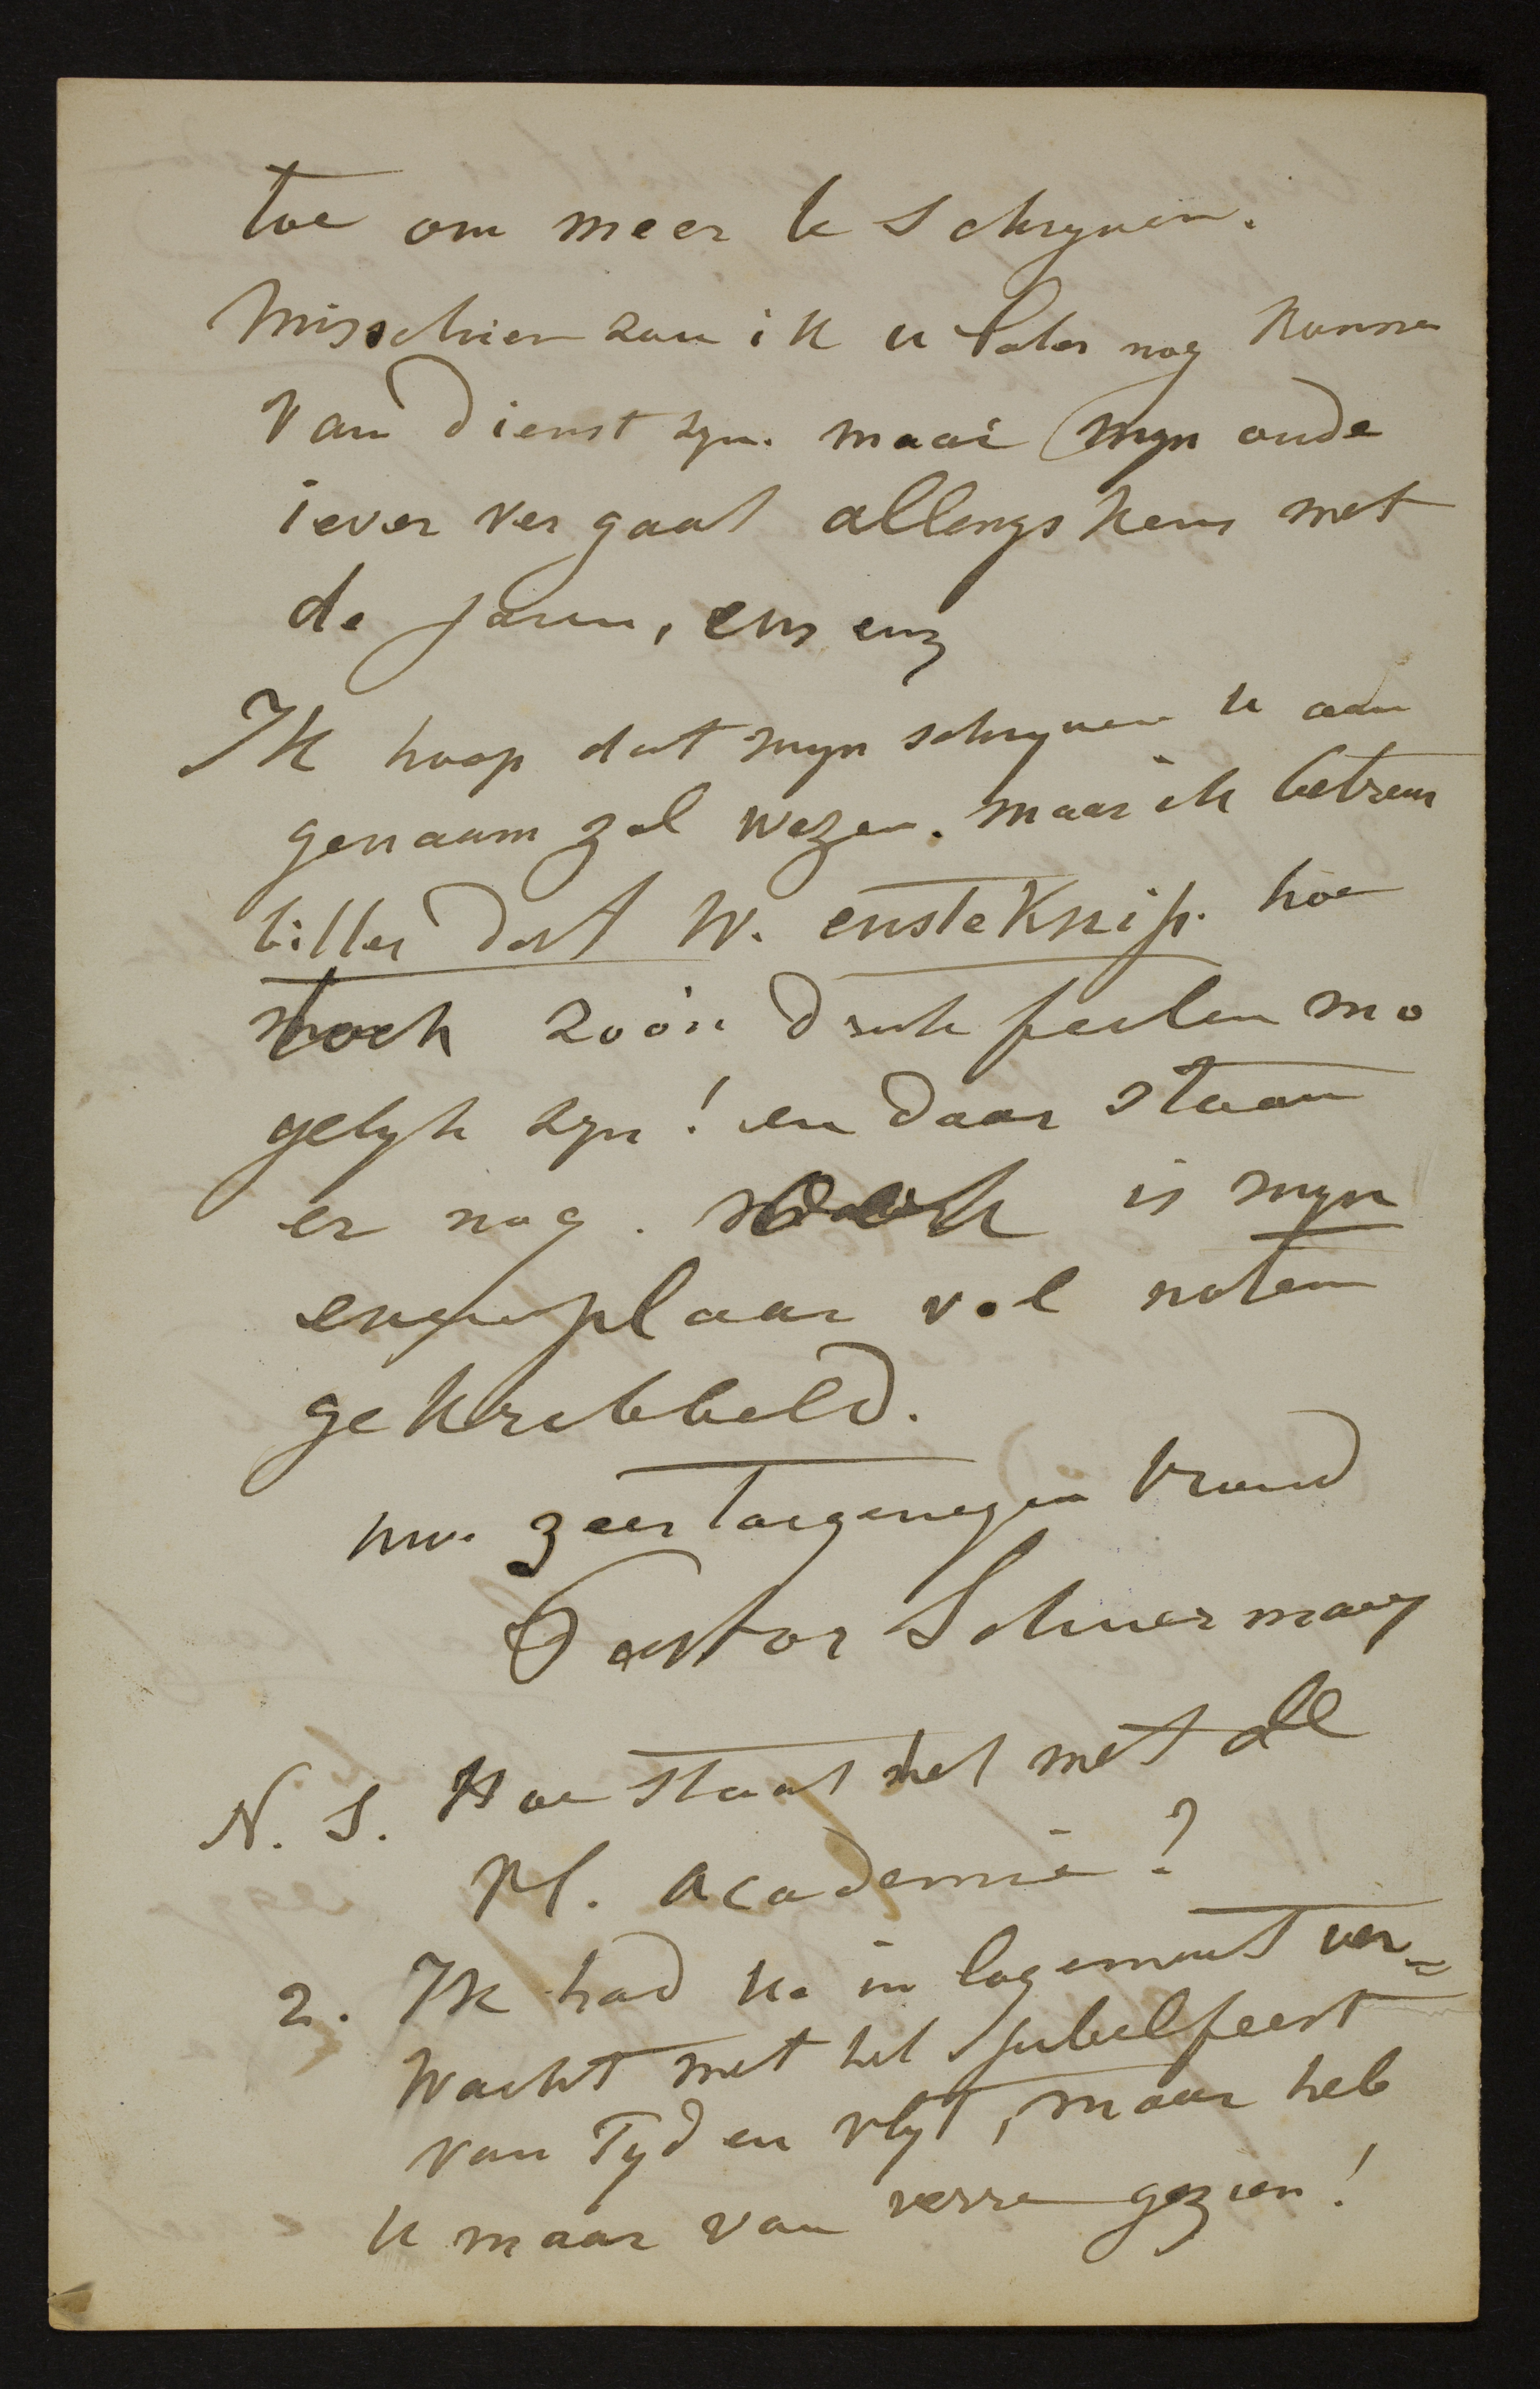 toe om meer te schryven.
Misschien zou ik u later nog konnen
van dienst zyn. maar myn oude
iever vergaat allengskens met
de jaren, enz enz
Ik hoop dat myn schryven u aan
genaam zal wezen. maar ik betreur
bitter dat W. en steKnip. hoe
toch zoo'n druk feilen mo
gelyk zyn! en daar staan
er nog. ook is myn
exemplaar vol noten
gekrabbeld.
uw. zeer toegenegen vriend
Pastor Schuermans
N. S. Hoe staat het met de
Vl. Academie?
2. Ik had u. in logement ver=
wacht met het jubelfeest
van Tyd en vlyt, maar heb
u maar van verre gezien!